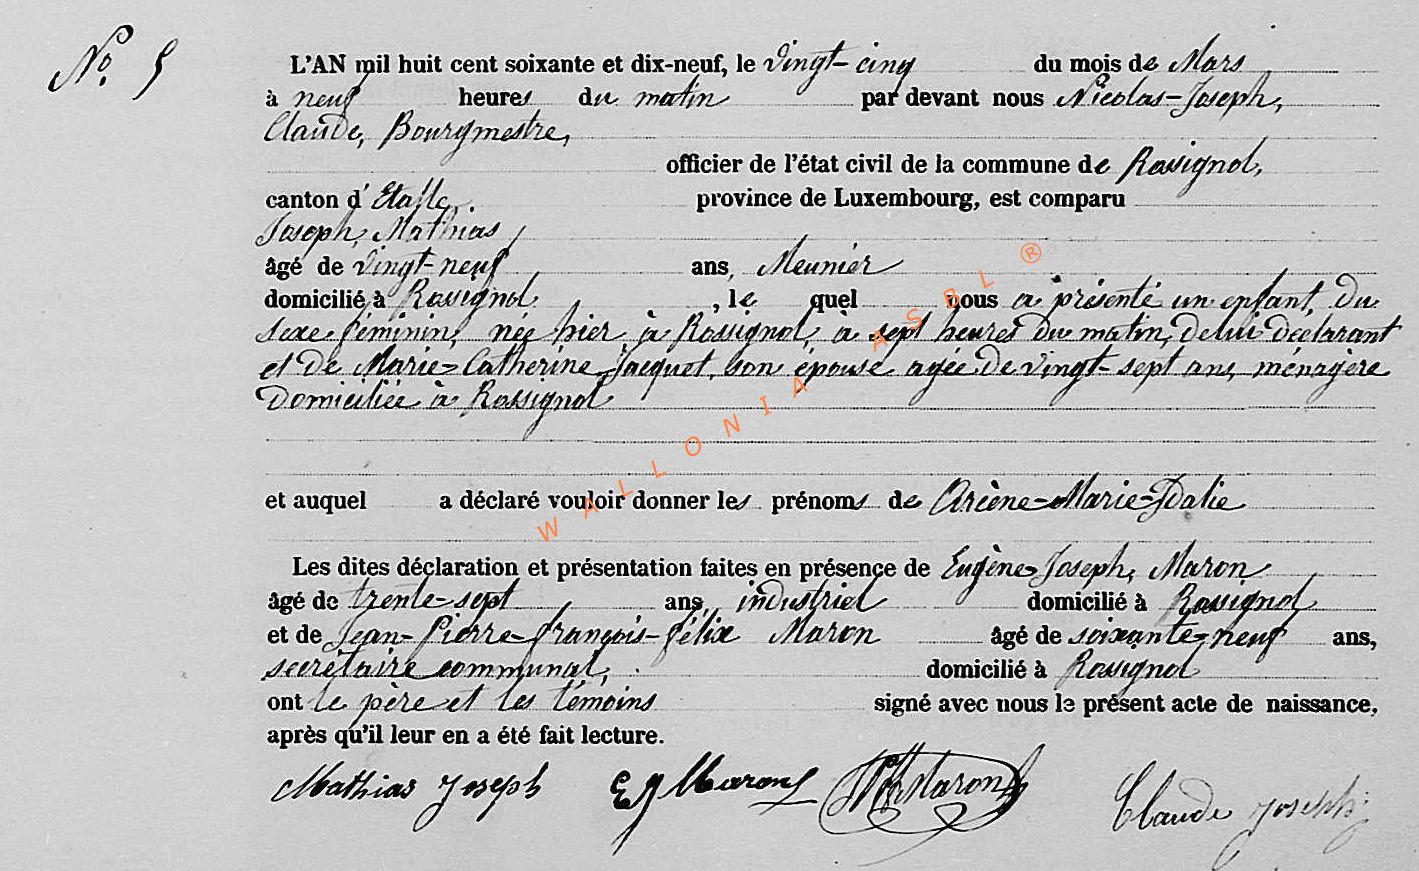 No. 5
L'AN mil huit cent soixante et dix-neuf, le vingt-cinq du mois de Mars
à neuf heures du matin par devant nous Nicolas-Joseph,
Claude, Bourgmestre,
officier de l'état civil de la commune de Rossignol,
canton d'Etalle province de Luxembourg, est comparu
Joseph, Mathias,
âgé de vingt-neuf ans, Meunier
domicilié à Rossignol, lequel nous a présenté un enfant, du
sexe féminin, née hier, à Rossignol, à sept heures du matin, de lui déclarant
et de Marie-Catherine Jacquet, son épouse agée de vingt-sept ans, ménagère
domiciliée à Rossignol
et auquel a déclaré vouloir donner les prénoms de Arcène-Marie-Idalie
Les dites déclaration et présentation faites en présence de Eugène-Joseph, Maron
âgé de trente-sept ans, industriel domicilié à Rossignol
et de Jean-Pierre-François-Félix Maron âgé de soixante-neuf ans,
secrétaire communal, domicilié à Rossignol
ont le père et les témoins signé avec nous le présent acte de naissance,
après qu'il leur en a été fait lecture.
Mathias Joseph E J Maron Maron Claude Joseph
WALLONIA ASBL ®